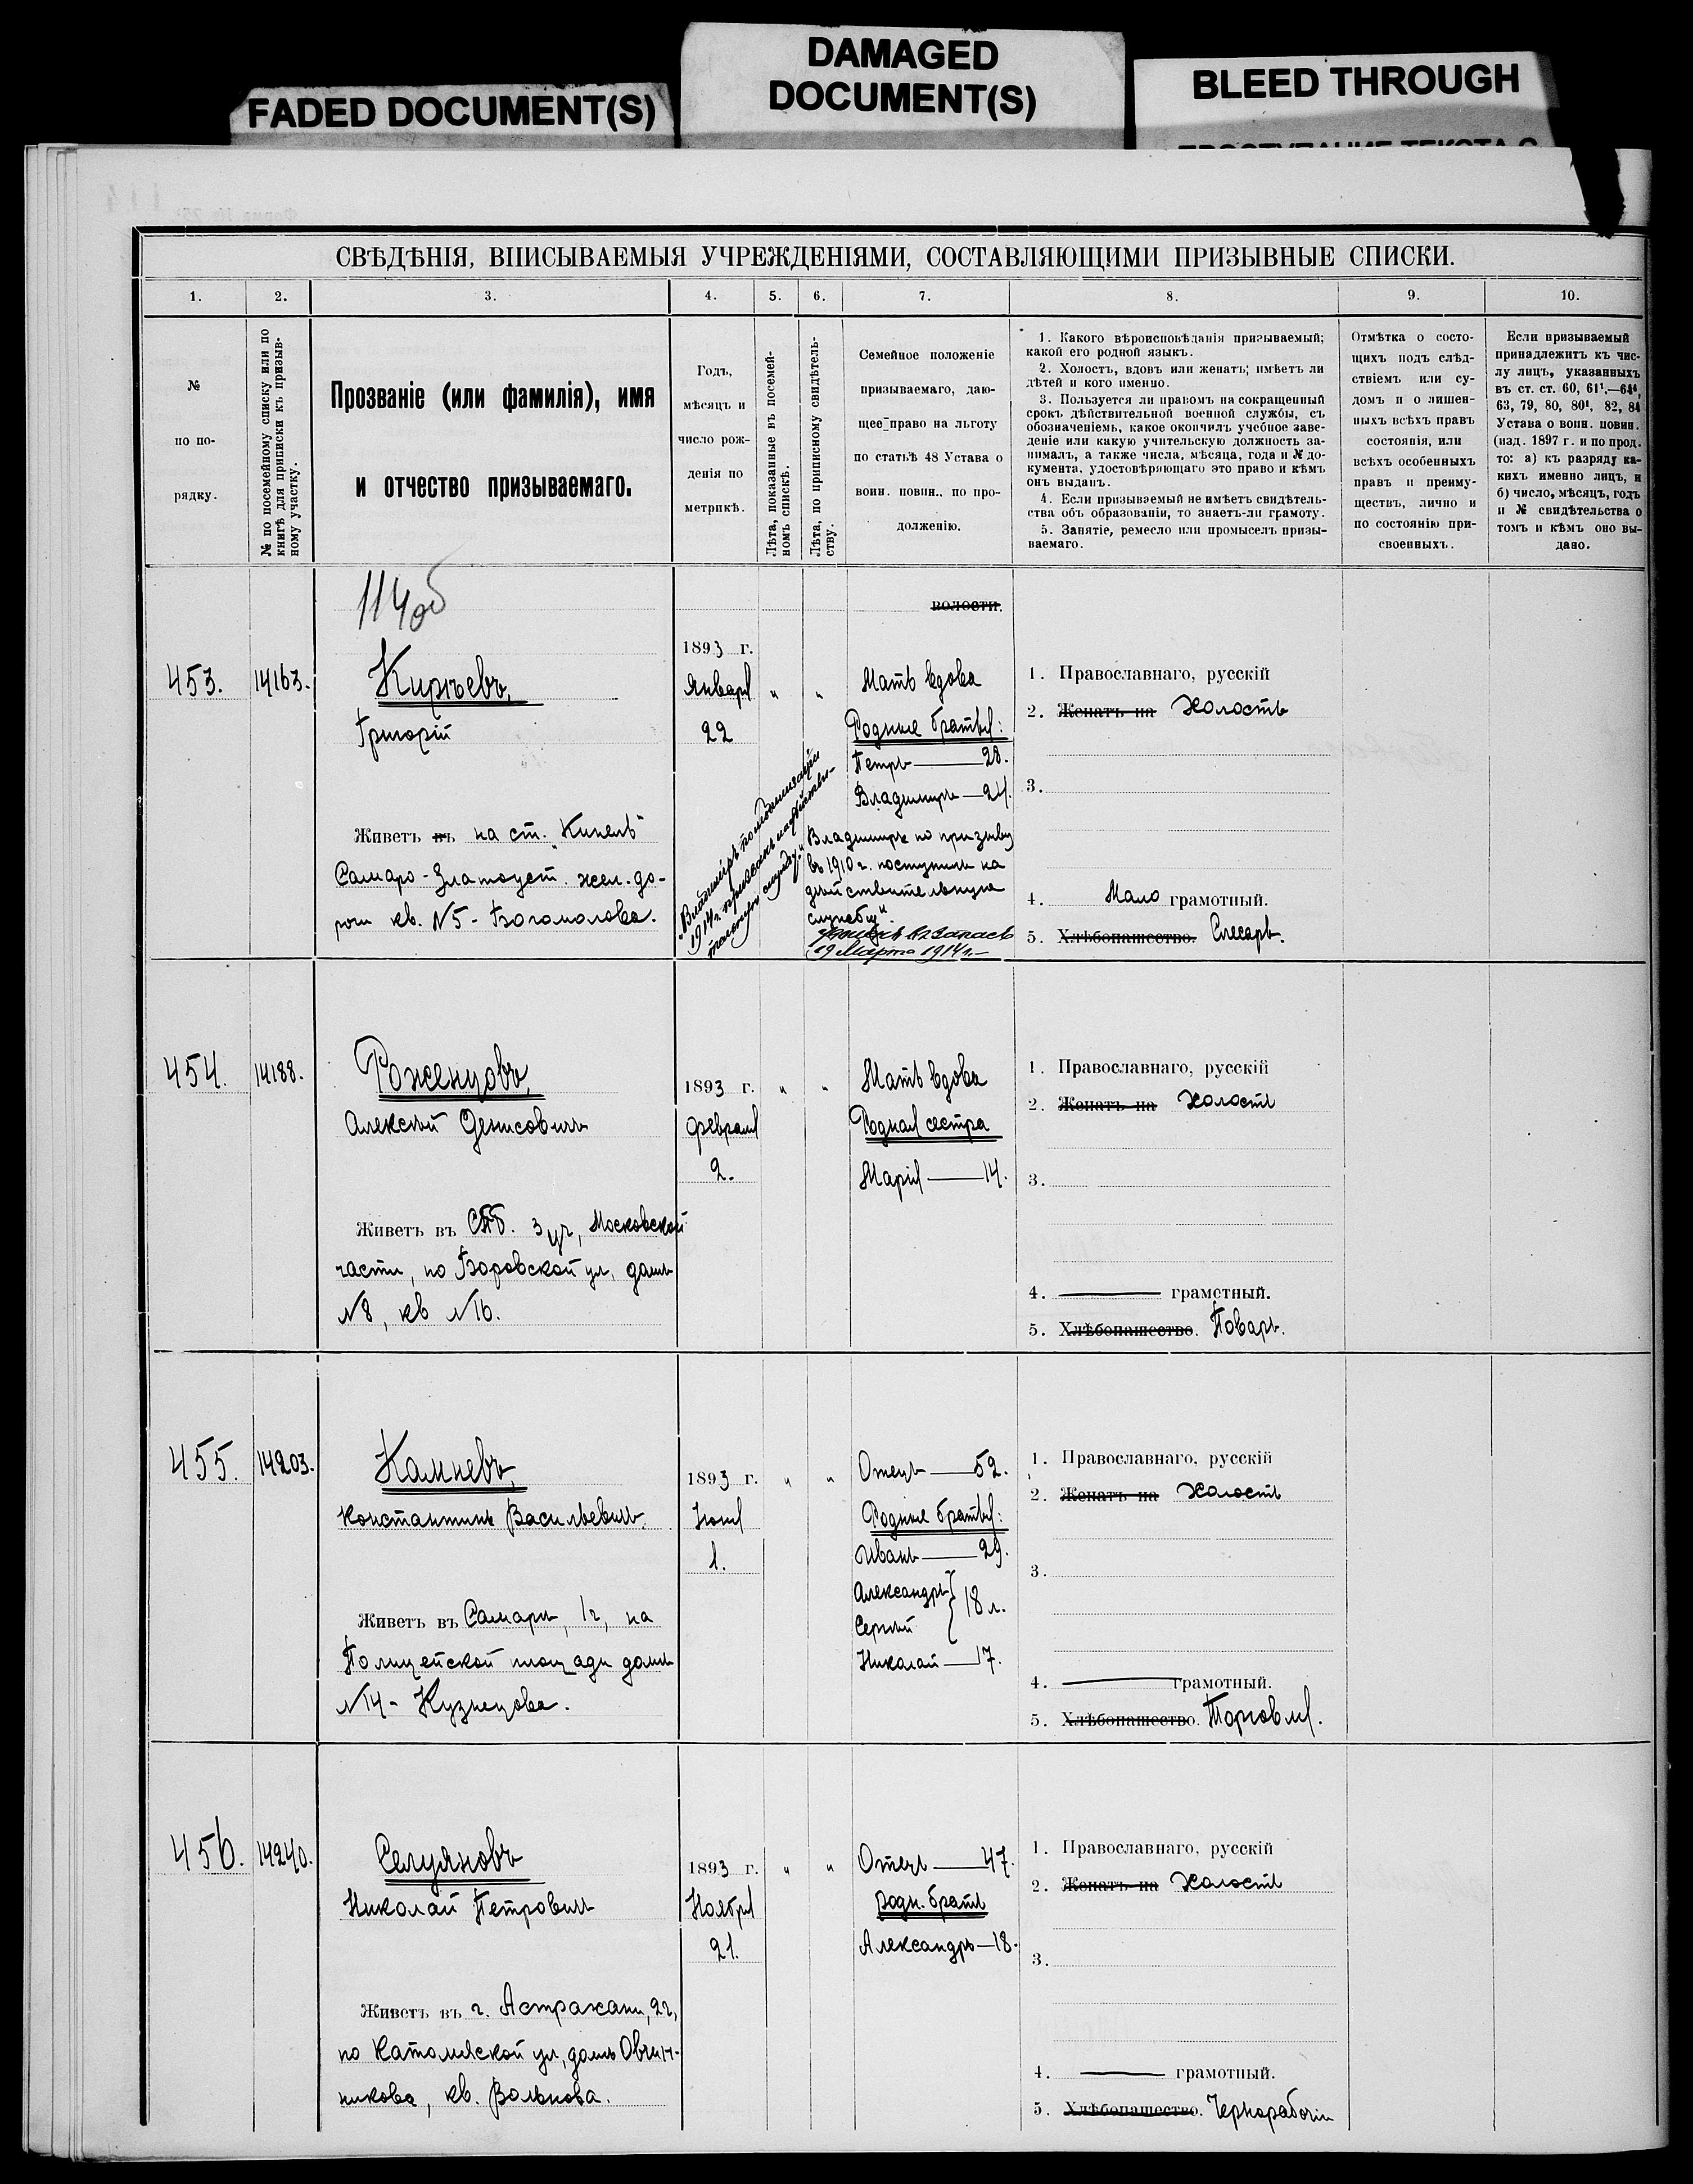 FADED DOCUMENT(S)
DAMAGED
DOCUMENT(S)
BLEED THROUGH
СВѢДѢНІЯ, ВПИСЫВАЕМЫЯ УЧРЕЖДЕНІЯМИ, СОСТАВЛЯЮЩИМИ ПРИЗЫВНЫЕ СПИСКИ.
1.
2.
3.
4.
5.
6.
7.
8.
9.
10.
№
по по-
рядку.
№ по посемейному списку или по
книгѣ для приписки къ призыв-
ному участку.
Прозваніе (или фамилія), имя
и отчество призываемаго.
Годъ,
мѣсяцъ и
число рож-
денія по
метрикѣ.
Лѣта, показанные въ посемей-
номъ спискѣ.
Лѣта, по приписному свидѣтель-
ству.
Семейное положеніе
призываемаго, даю-
щее право на льготу
по статьѣ 48 Устава о
воин. повин., по про-
долженію.
1. Какого вѣроисповѣданія призываемый;
какой его родной языкъ.
2. Холостъ, вдовъ или женатъ; имѣетъ ли
дѣтей и кого именно.
3. Пользуется ли правомъ на сокращенный
срокъ дѣйствительной военной службы, съ
обозначеніемъ, какое окончилъ учебное заве-
деніе или какую учительскую должность за-
нималъ, а также числа, мѣсяца, года и № до-
кумента, удостовѣряющаго это право и кѣмъ
онъ выданъ.
4. Если призываемый не имѣетъ свидѣтель-
ства объ образованіи, то знаетъ-ли грамоту.
5. Занятіе, ремесло или промыселъ призы-
ваемаго.
Отмѣтка о состо-
щихъ подъ слѣд-
ствіемъ или су-
домъ и о лишен-
ныхъ всѣхъ правъ
состоянія, или
всѣхъ особенныхъ
правъ и преиму-
ществъ, лично и
по состоянію при-
своенныхъ.
Если призываемый
принадлежитъ къ чис-
лу лицъ, указанныхъ
въ ст. ст. 60, 61¹,—64⁴,
63, 79, 80, 80¹, 82, 84
Устава о воин. повин.
(изд. 1897 г. и по прод.
то: а) къ разряду ка-
кихъ именно лицъ, и
б) число, мѣсяцъ, годъ
и № свидѣтельства о
томъ и кѣмъ оно вы-
дано.
114 об
волости.
453.
14163.
Кирѣевъ,
Григорій
Живетъ въ на ст. „Кинель"
Самаро-Златоуст. жел. до-
роги кв. №5 - Богомолова.
1893 г.
Января
22
„ „
Мать вдова
Родные братья:
Петръ — 28.
Владимиръ — 24.
Владимиръ по призыву
въ 1910 г. поступилъ на
дѣйствительную
службу".
19 Марта 1914 г.—
„Владиміръ по мобилизаціи
1914 г. призванъ на дѣйстви-
тельную службу."
1. Православнаго, русскій
2. Женатъ на Холостъ
3.
4. Мало грамотный.
5. Хлѣбопашество. Слесарь.
454.
14188.
Роженцовъ,
Алексѣй Денисовичъ
Живетъ въ СПб. 3 уч, Московской
части, по Боровской ул, домъ
№8, кв №16.
1893 г.
Февраля
2.
„ „
Мать вдова
Родная сестра
Марія — 14.
1. Православнаго, русскій
2. Женатъ на Холостъ
3.
4. — грамотный.
5. Хлѣбопашество. Поваръ.
455.
14203.
Камневъ,
Константинъ Васильевичъ.
Живетъ въ Самарѣ, 1 ч, на
Полицейской площади домъ
№14 - Кузнецова.
1893 г.
Іюня
1.
„ „
Отецъ — 52.
Родные братья:
Иванъ — 29.
Александръ }
Сергѣй } 18 л.
Николай — 17.
1. Православнаго, русскій
2. Женатъ на Холостъ
3.
4. — грамотный.
5. Хлѣбопашество. Торговля.
456.
14240.
Селуяновъ
Николай Петровичъ
Живетъ въ г. Астрахани, 2 ч,
по Католической ул, домъ Овчин-
никова, кв. Вольнова.
1893 г.
Ноября
21.
„ „
Отецъ — 47.
Родн. братъ
Александръ — 18.
1. Православнаго, русскій
2. Женатъ на Холостъ
3.
4. — грамотный.
5. Хлѣбопашество. Чернорабочій